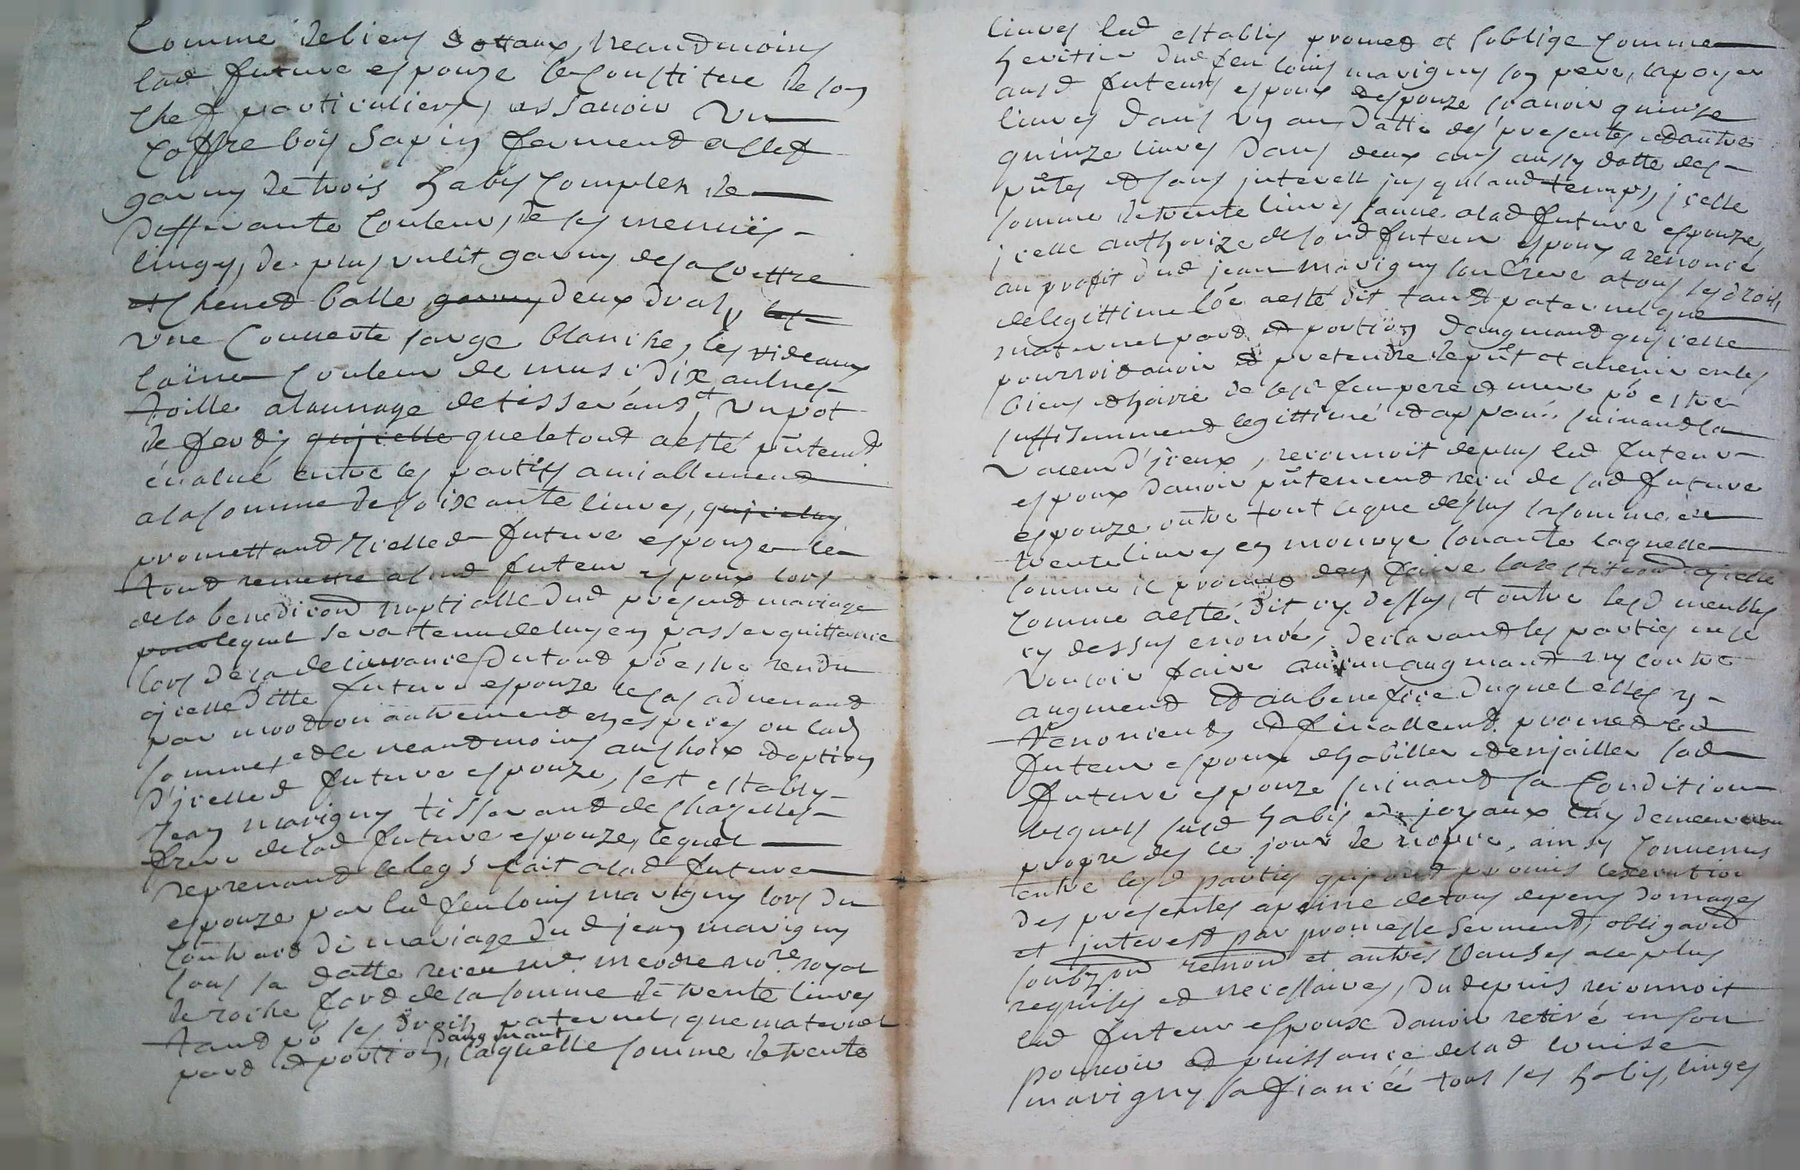 Comme de biens dottaux, neandmoins
lad future espouze se constitue de son
chef particuliers, assavoir un
coffre bois sapin fermend a clef
garny de trois habis complex de
differante couleur, de ses menues
linges, de plus un lit garny de sa coettre
et chevet balle, garny deux dras, les
une couverte sarge blanche, les rideaux
laine couleur de musc, dix aulnes
toille a launage de tisserands, et un pot
de fer dy qu'icelle que le tout a esté pntemt
évalué entre les partiys amiablement
a la somme de soixante livres, qu'icelluy
promettand icelled future espouze le
tout remettre a sond futeur espoux lors
de la benediction nuptialle dud présend mariage
pour lequel sera tenu de luy en passer quittance
lors de la delivrance du tout po estre rendu
a icelle ditte future espouze le cas advenand
par mort ou autrement en especes ou lad
somme, et ce neandmoins au choix et option
d'icelled future espouze, s'est estably
Jean marigny tisserand de Chazelles
frere de lad future espouze, lequel
reprenand le legs fait a lad future
espouze par led feu louis marigny lors du
contract de mariage dud jean marigny
sous sa datte receu me meodre nore royal
de roche ford de la somme de trente livres
tand po les droits paternel, que maternel
pard et portion, daugmant laquelle somme de trente
livres led estably promet et s'oblige comme
heritier dud feu louis marigny son pere, le payer
ausd futeurs espoux et espouze scavoir quinze
livres dans un an datte des presentes et autres
quinze livres dans deux ans aussy datte des
pntes et sans interest jusqu'aud temps, icelle
somme de trente livres sauve a lad future espouze,
icelle authorize de sond futeur espoux a renoncé
au profit dud jean marigny son frere a tous ses drois
de legittime soé a esté dit tand paternel que
maternel pard et portion d'augmand qu'icelle
pourroit avoir et pretendre de pnt et a l'avenir en les
biens et hoirie de sesd feu pere et mere po estre
suffisemment legittimé et appané suivand la
valeur d'iceux, reconnoit de plus led futeur
espoux d'avoir pntement receu de lad future
espouze outre tout ce que dessus la somme de
trente livres en monoye sonante laquelle
somme il promet d'en faire la restitution a icelle
comme a esté dit cy dessus, et outre lesd meubles
cy dessus enoncé, declarand les parties ne se
vouloir faire aucun augmand ny contre
augment et au benefice duquel elles y
renoncend, et finallemt promet led
futeur espoux d'habiller et enjoailler lad
future espouze suivand sa condition
lesquels susd habis et joyaux luy demeureron
propre des le jour de nopce, ainsy convenus
entre lesd parties qui ond promis l'exécution
des presentes a peine de tous depens domages
et interest par promesse serment, obligaons
soubzon renon et autres clauses a ce plus
requises et necessaires, du depuis reconnoit
led futeur espoux d'avoir retiré en son
pouvoir et puissance de lad louise
marigny sa fiancée tous ses habis, linges